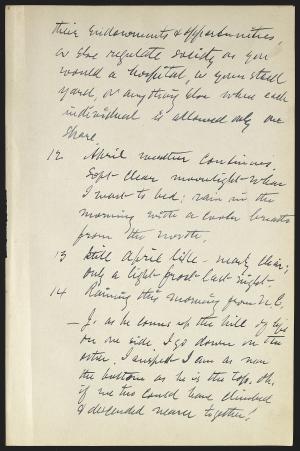 their endowments & opportunities,
or else regulate society as you
would a hospital, or your steel
yard, or anything else where each
individual is allowed only one
share.
12 April weather continues.
Soft clear moonlight when
I went to bed; rain in the
morning with a cooler breath
from the north.
13 Still April like - nearly clear;
only a light frost last night.
14 Raining this morning from N.E.
— J. as he comes up the hill of life
on one side, I go down on the
other. I suspect I am as near
the bottom as he is the top. Oh,
if we two could have climbed
& descended nearer together!